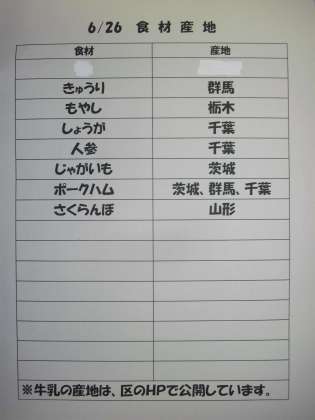 6/26 食材産地
食材 産地
きゅうり 群馬
もやし 栃木
しょうが 千葉
人参 千葉
じゃがいも 茨城
ポークハム 茨城、群馬、千葉
さくらんぼ 山形
※牛乳の産地は、区のHPで公開しています。